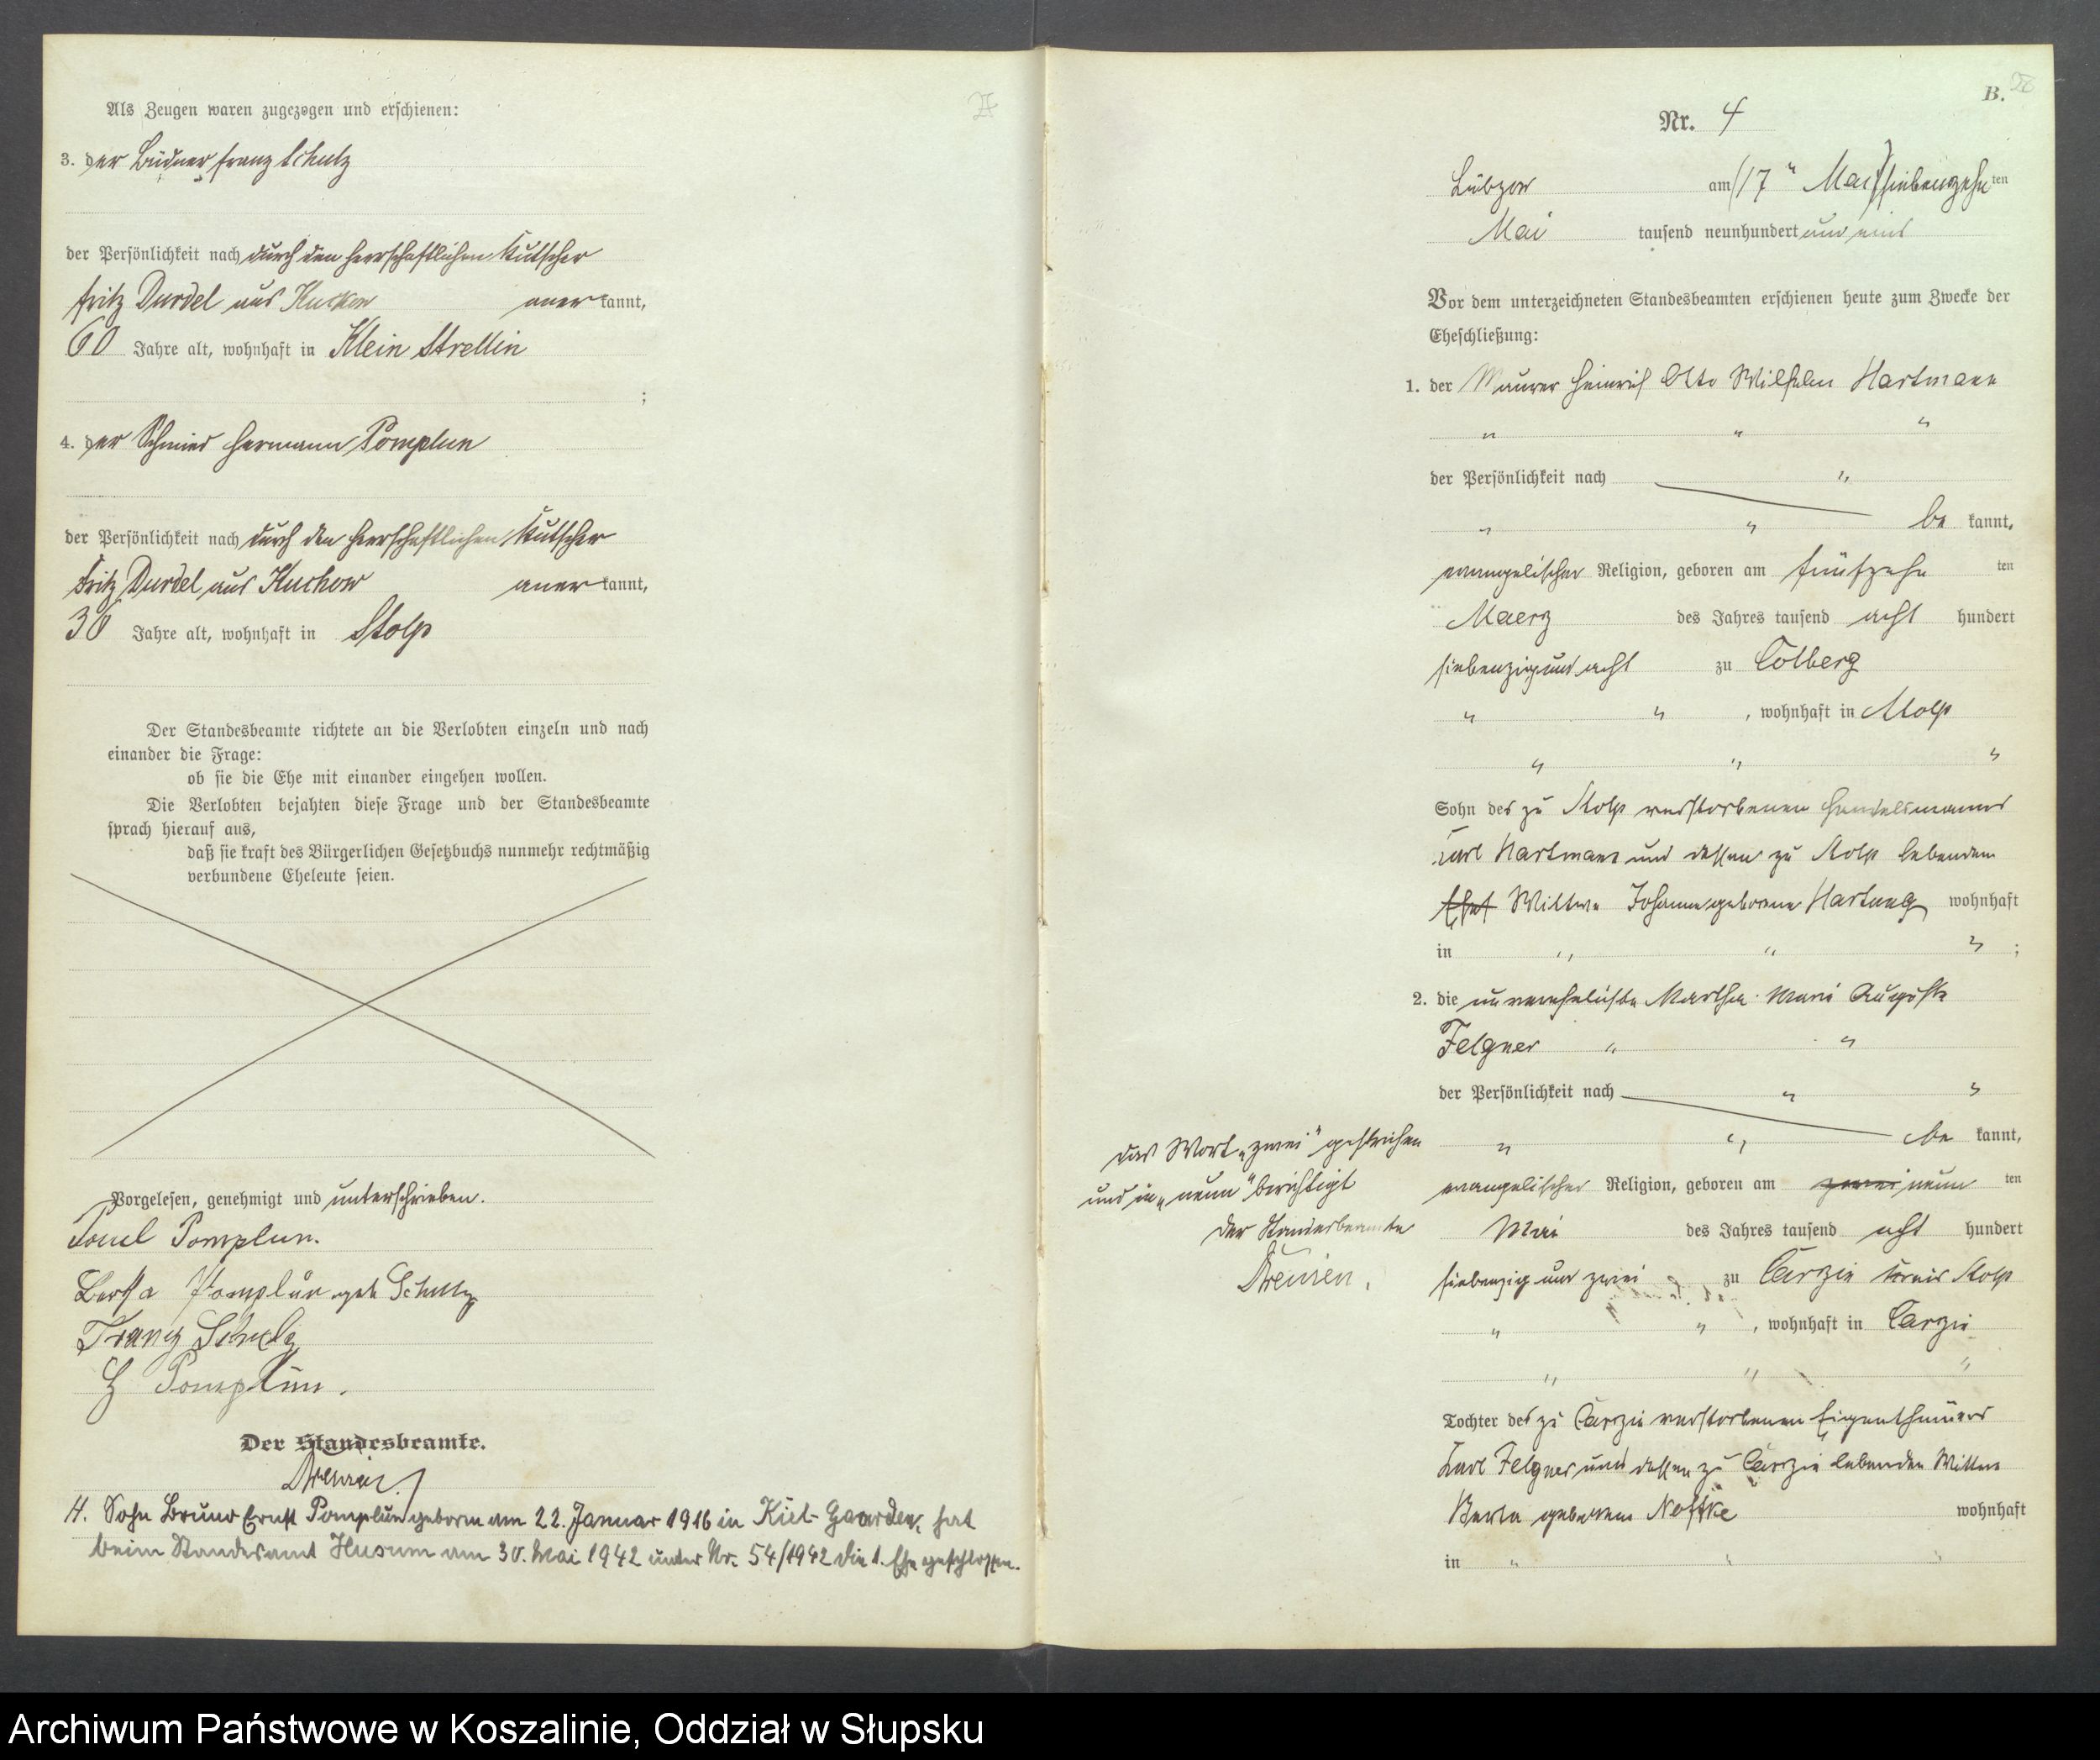 Als Zeugen waren zugezogen und erschienen:
3. der Büdner Franz Schulz
der Persönlichkeit nach durch den herrschaftlichen Kutscher
Fritz Durdel aus Kuckow anerkannt,
60 Jahre alt, wohnhaft in Klein Strellin
;
4. der Schmied Hermann Pomplun
der Persönlichkeit nach durch den herrschaftlichen Kutscher
Fritz Durdel, aus Kuckow anerkannt,
30 Jahre alt, wohnhaft in Stolp
Der Standesbeamte richtete an die Verlobten einzeln und nach
einander die Frage:
ob sie die Ehe mit einander eingehen wollen.
Die Verlobten bejahten diese Frage und der Standesbeamte
sprach hierauf aus,
daß sie kraft des Bürgerlichen Gesetzbuchs nunmehr rechtmäßig
verbundene Eheleute seien.
Vorgelesen, genehmigt und unterschrieben.
Pomplun.
Berta Pomplun geb Schulz
Franz Schulz
H Pomplun.
Der Standesbeamte.
4. Sohn Bruno Ernst Pomplun geboren am 22. Januar 1916 in Kiel-Gaarden, hat
beim Standesamt Husum am 30. Mai 1942 unter Nr. 54/1942 die 1. Ehe geschlossen.
27
B.
Nr. 4
Lübzow am (17 " Mai) siebenzehnten
Mai tausend neunhundert und eins
Vor dem unterzeichneten Standesbeamten erschienen heute zum Zwecke der
Eheschließung:
1. der Maurer Heinrich Otto Wilhelm Hartmann
" " "
der Persönlichkeit nach "
" " be kannt,
evangelischer Religion, geboren am fünfzehn ten
Maerz des Jahres tausend acht hundert
siebenzig und acht zu Colberg
" " , wohnhaft in Stolp
" " "
Sohn des zu Stolp verstorbenen Handelsmannes
Carl Hartmann und dessen zu Stolp lebenden
Wittwe Johanne geborene Hartung wohnhaft
in " " " ;
2. die unverehelichte Martha Marie Auguste
Felgner " "
der Persönlichkeit nach " "
" " be kannt,
evangelischer Religion, geboren am zwei neun ten
Mai des Jahres tausend acht hundert
siebenzig und zwei zu Carzin Kreis Stolp
" " , wohnhaft in Carzin
" " "
Tochter des zu Carzin verstorbenen Eigenthümers
Karl Felgner und dessen zu Carzin lebenden Wittwe
Berta geborene Noffke wohnhaft
in " " "
das Wort „zwei" gestrichen
und in „neun" berichtigt
Der Standesbeamte
Archiwum Państwowe w Koszalinie, Oddział w Słupsku